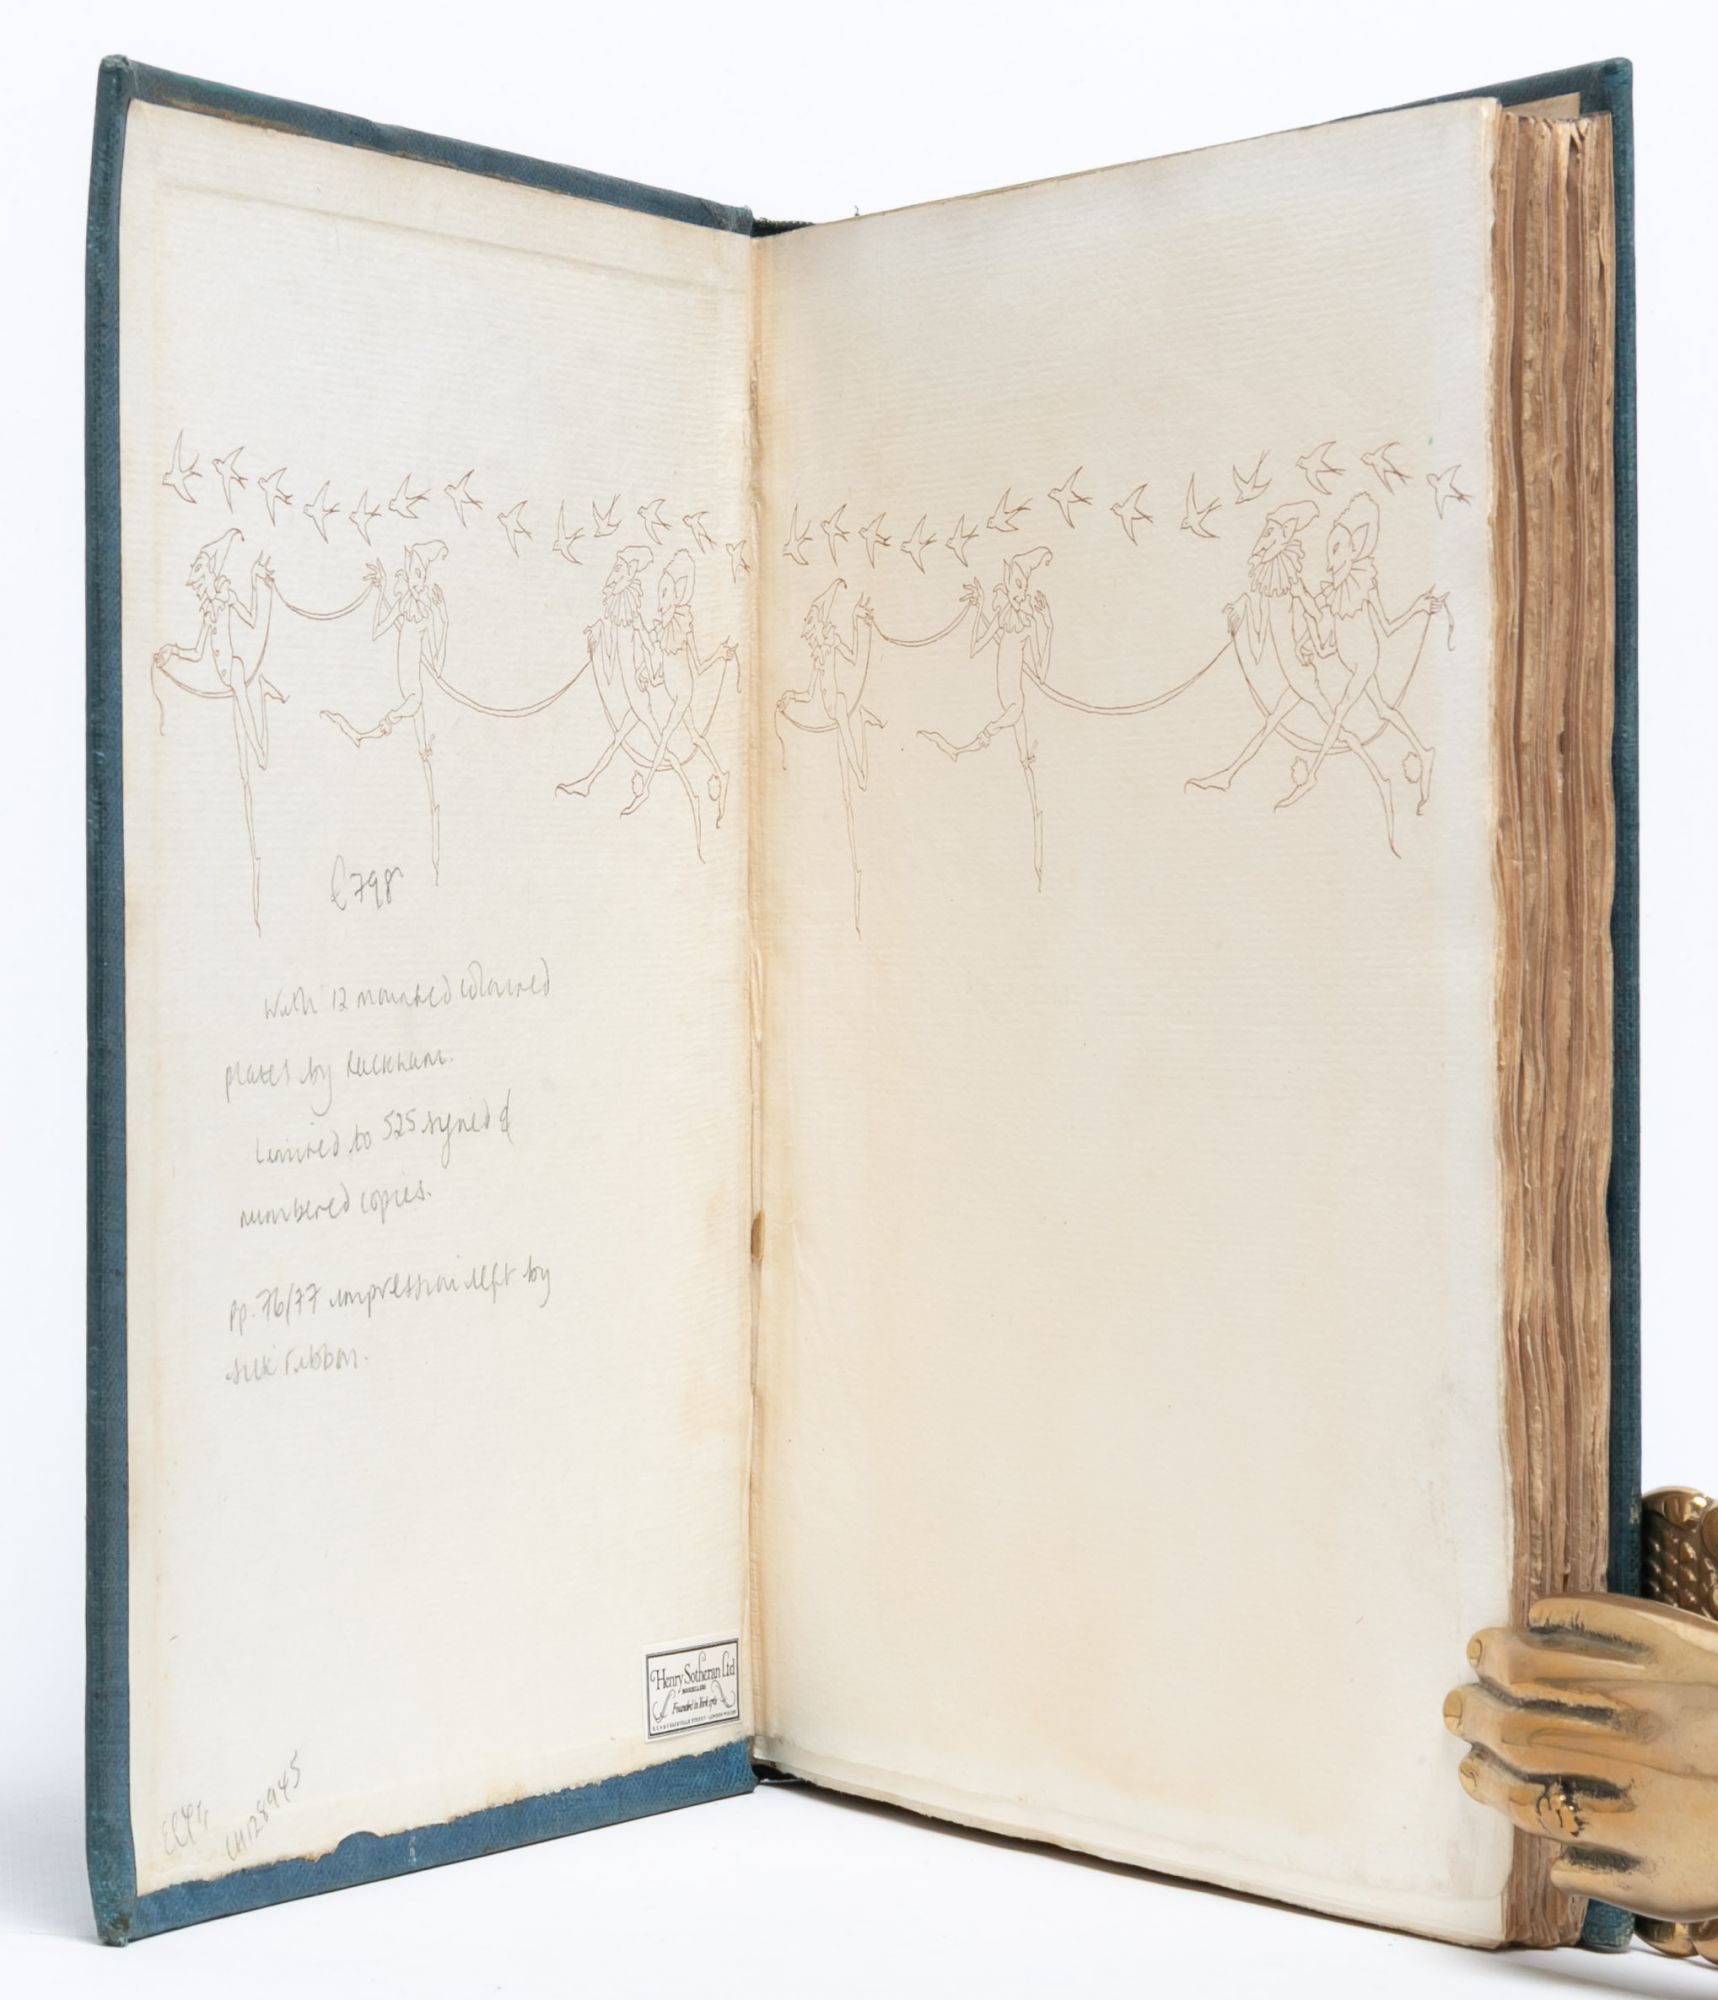 £798
With 12 mounted coloured
plates by Rackham.
Limited to 525 signed &
numbered copies.
pp. 76/77 impression left by
silk ribbon.
Henry Sotheran Ltd
BOOKSELLERS
Founded in York 1761
SACKVILLE STREET LONDON
128945